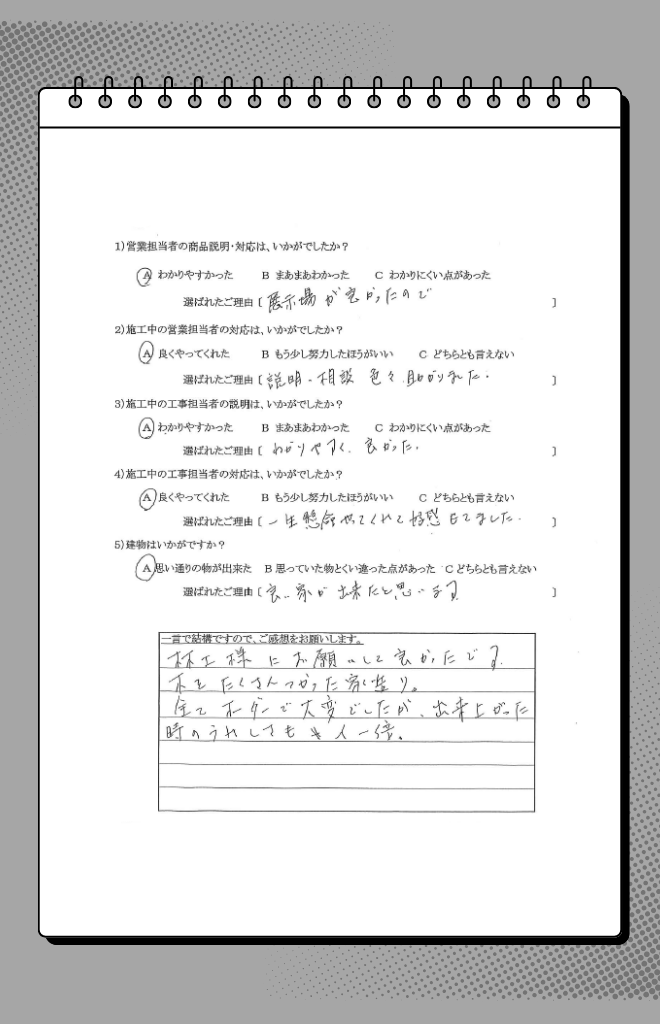 1)営業担当者の商品説明・対応は、いかがでしたか?
A わかりやすかった B まあまあわかった C わかりにくい点があった
選ばれたご理由 [ 展示場が良かったので ]
2)施工中の営業担当者の対応は、いかがでしたか?
A 良くやってくれた B もう少し努力したほうがいい C どちらとも言えない
選ばれたご理由 [ 説明・相談 色々助かりました. ]
3)施工中の工事担当者の説明は、いかがでしたか?
A わかりやすかった B まあまあわかった C わかりにくい点があった
選ばれたご理由 [ わかりやすく、良かった. ]
4)施工中の工事担当者の対応は、いかがでしたか?
A 良くやってくれた B もう少し努力したほうがいい C どちらとも言えない
選ばれたご理由 [ 一生懸命やってくれて好感もてました. ]
5)建物はいかがですか?
A 思い通りの物が出来た B 思っていた物とくい違った点があった C どちらとも言えない
選ばれたご理由 [ 良い家が出来たと思います ]
一言で結構ですので、ご感想をお願いします。
林工様にお願いして良かったです.
木をたくさんつかった家造り。
全てオーダーで大変でしたが、出来上がった
時のうれしさも 人一倍。